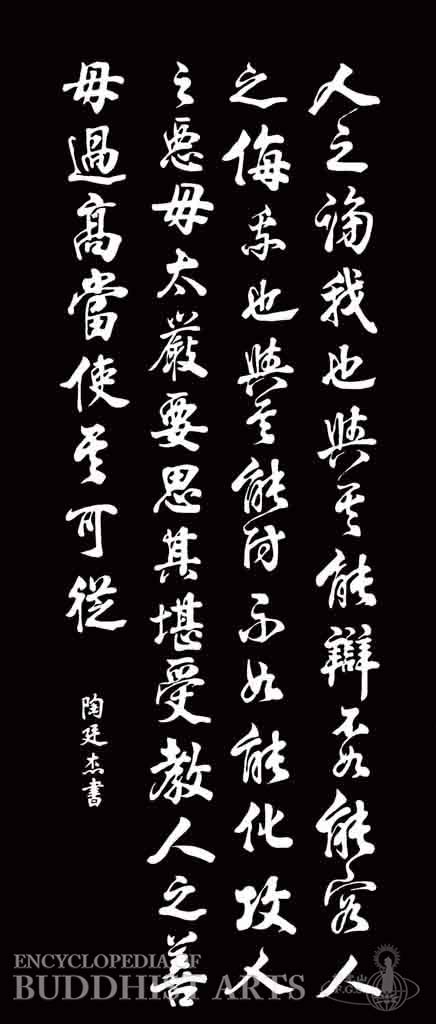 人之謗我也與其能辯不如能容人
之侮我也與其能防不如能化攻人
之惡毋太嚴要思其堪受教人之善
毋過高當使其可從
陶廷杰書
ENCYCLOPEDIA OF
BUDDHIST ARTS